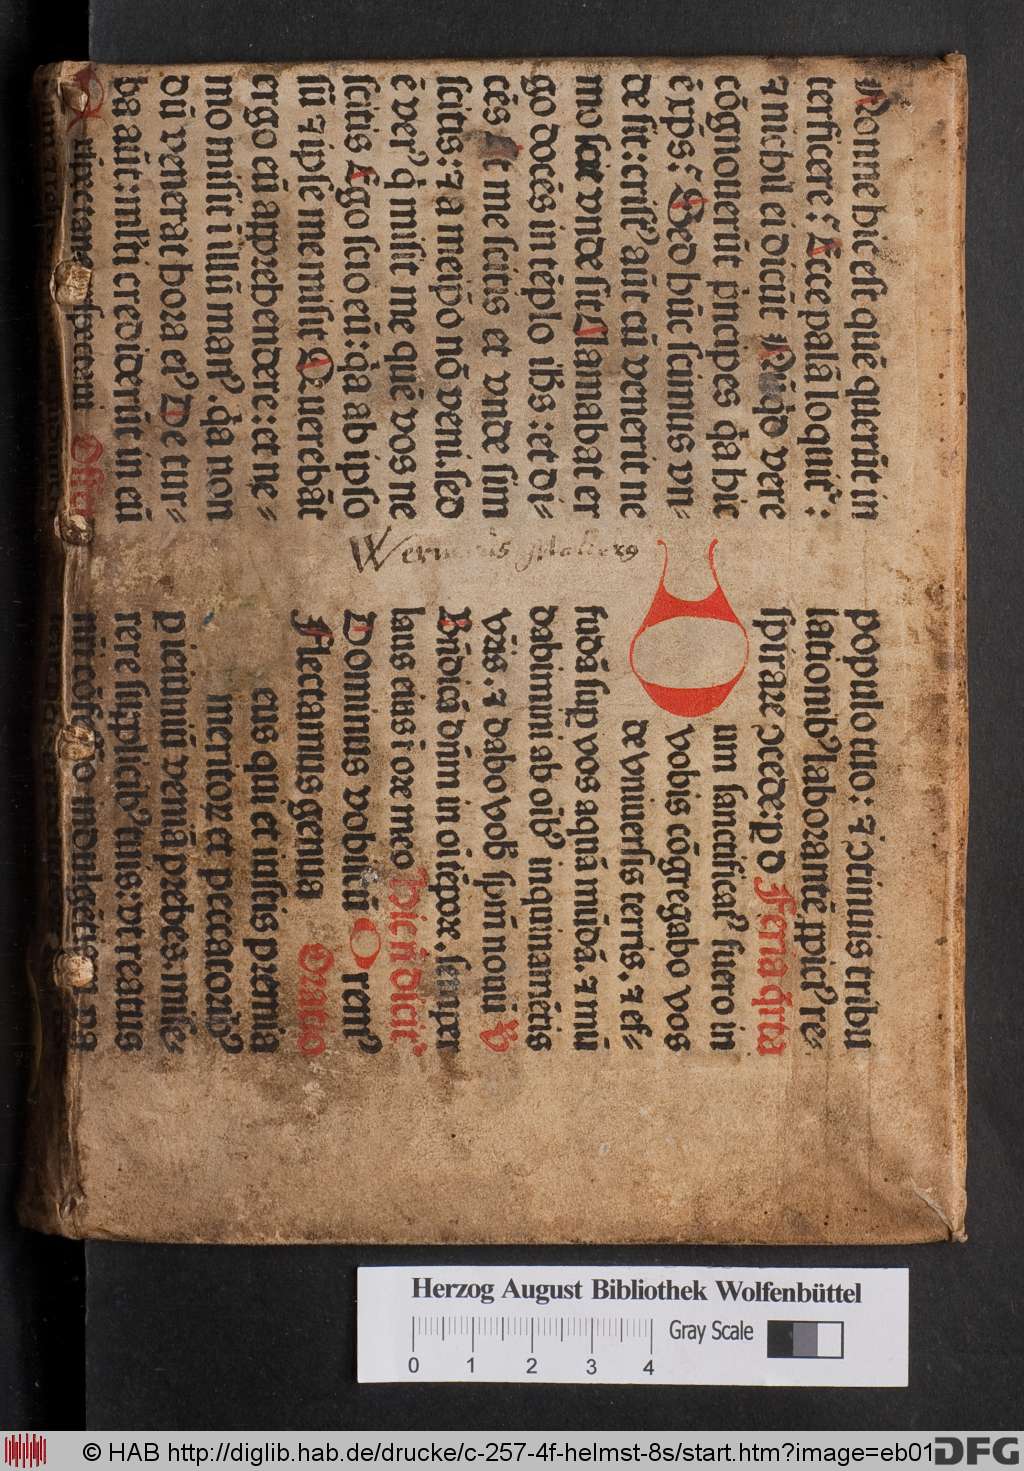 Nonne hic est quē querūt in
terficere? Ecce palā loquit᷑:
⁊ nichil ei dicūt Nūqd vere
cōgnouerūt p̄ncipes qa hic
ē xp̄s? Sed hūc scimus vn=
de sit: crist᷒ aūt cū venerit ne
mo scit vnde sit Clamabat er
go docēs in tēplo ihs: et di=
cēs Et me scitis et vnde sim
scitis: ⁊ a meip̄o nō veni. sed
ē ver᷒ q misit me quē vos ne
scitis Ego scio eū: qa ab ipso
sū ⁊ ipse me misit Querebāt
ergo eū apprehendere: et ne=
mo misit i illū man᷒. qa non
dū venerat hora ei᷒ De tur=
ba aūt: multi crediderūt in eū
Wernerus
populo tuo: ⁊ ꝯtinuis tribu
lationib᷒ laborantē ꝓpici᷒ re=
spirare ꝯcede: p d Feria q̄rta
Cum sanctificat᷒ fuero in
vobis cōgregabo vos
de vniuersis terris. ⁊ ef=
fūdā sup vos aquā mūdā. ⁊ mū
dabimini ab oīb᷒ inquinamētis
vr̄is. ⁊ dabo vob sp̄m nouū ℣
Bn̄dicā dn̄m in oi tēpore. semper
laus eius i ore meo Hic n̄ dicit᷑
Dominus vobiscū Orem᷒
Flectamus genua Oratio
eus qui et iustis premia
meritoꝝ et peccatorib᷒
pieiuniū veniā prebes: mise=
rere suplicib᷒ tuis: vt reatus
nr̄i cōfessio indulgētiam
Herzog August Bibliothek Wolfenbüttel
0 1 2 3 4
Gray Scale
© HAB http://diglib.hab.de/drucke/c-257-4f-helmst-8s/start.htm?image=eb01
DFG